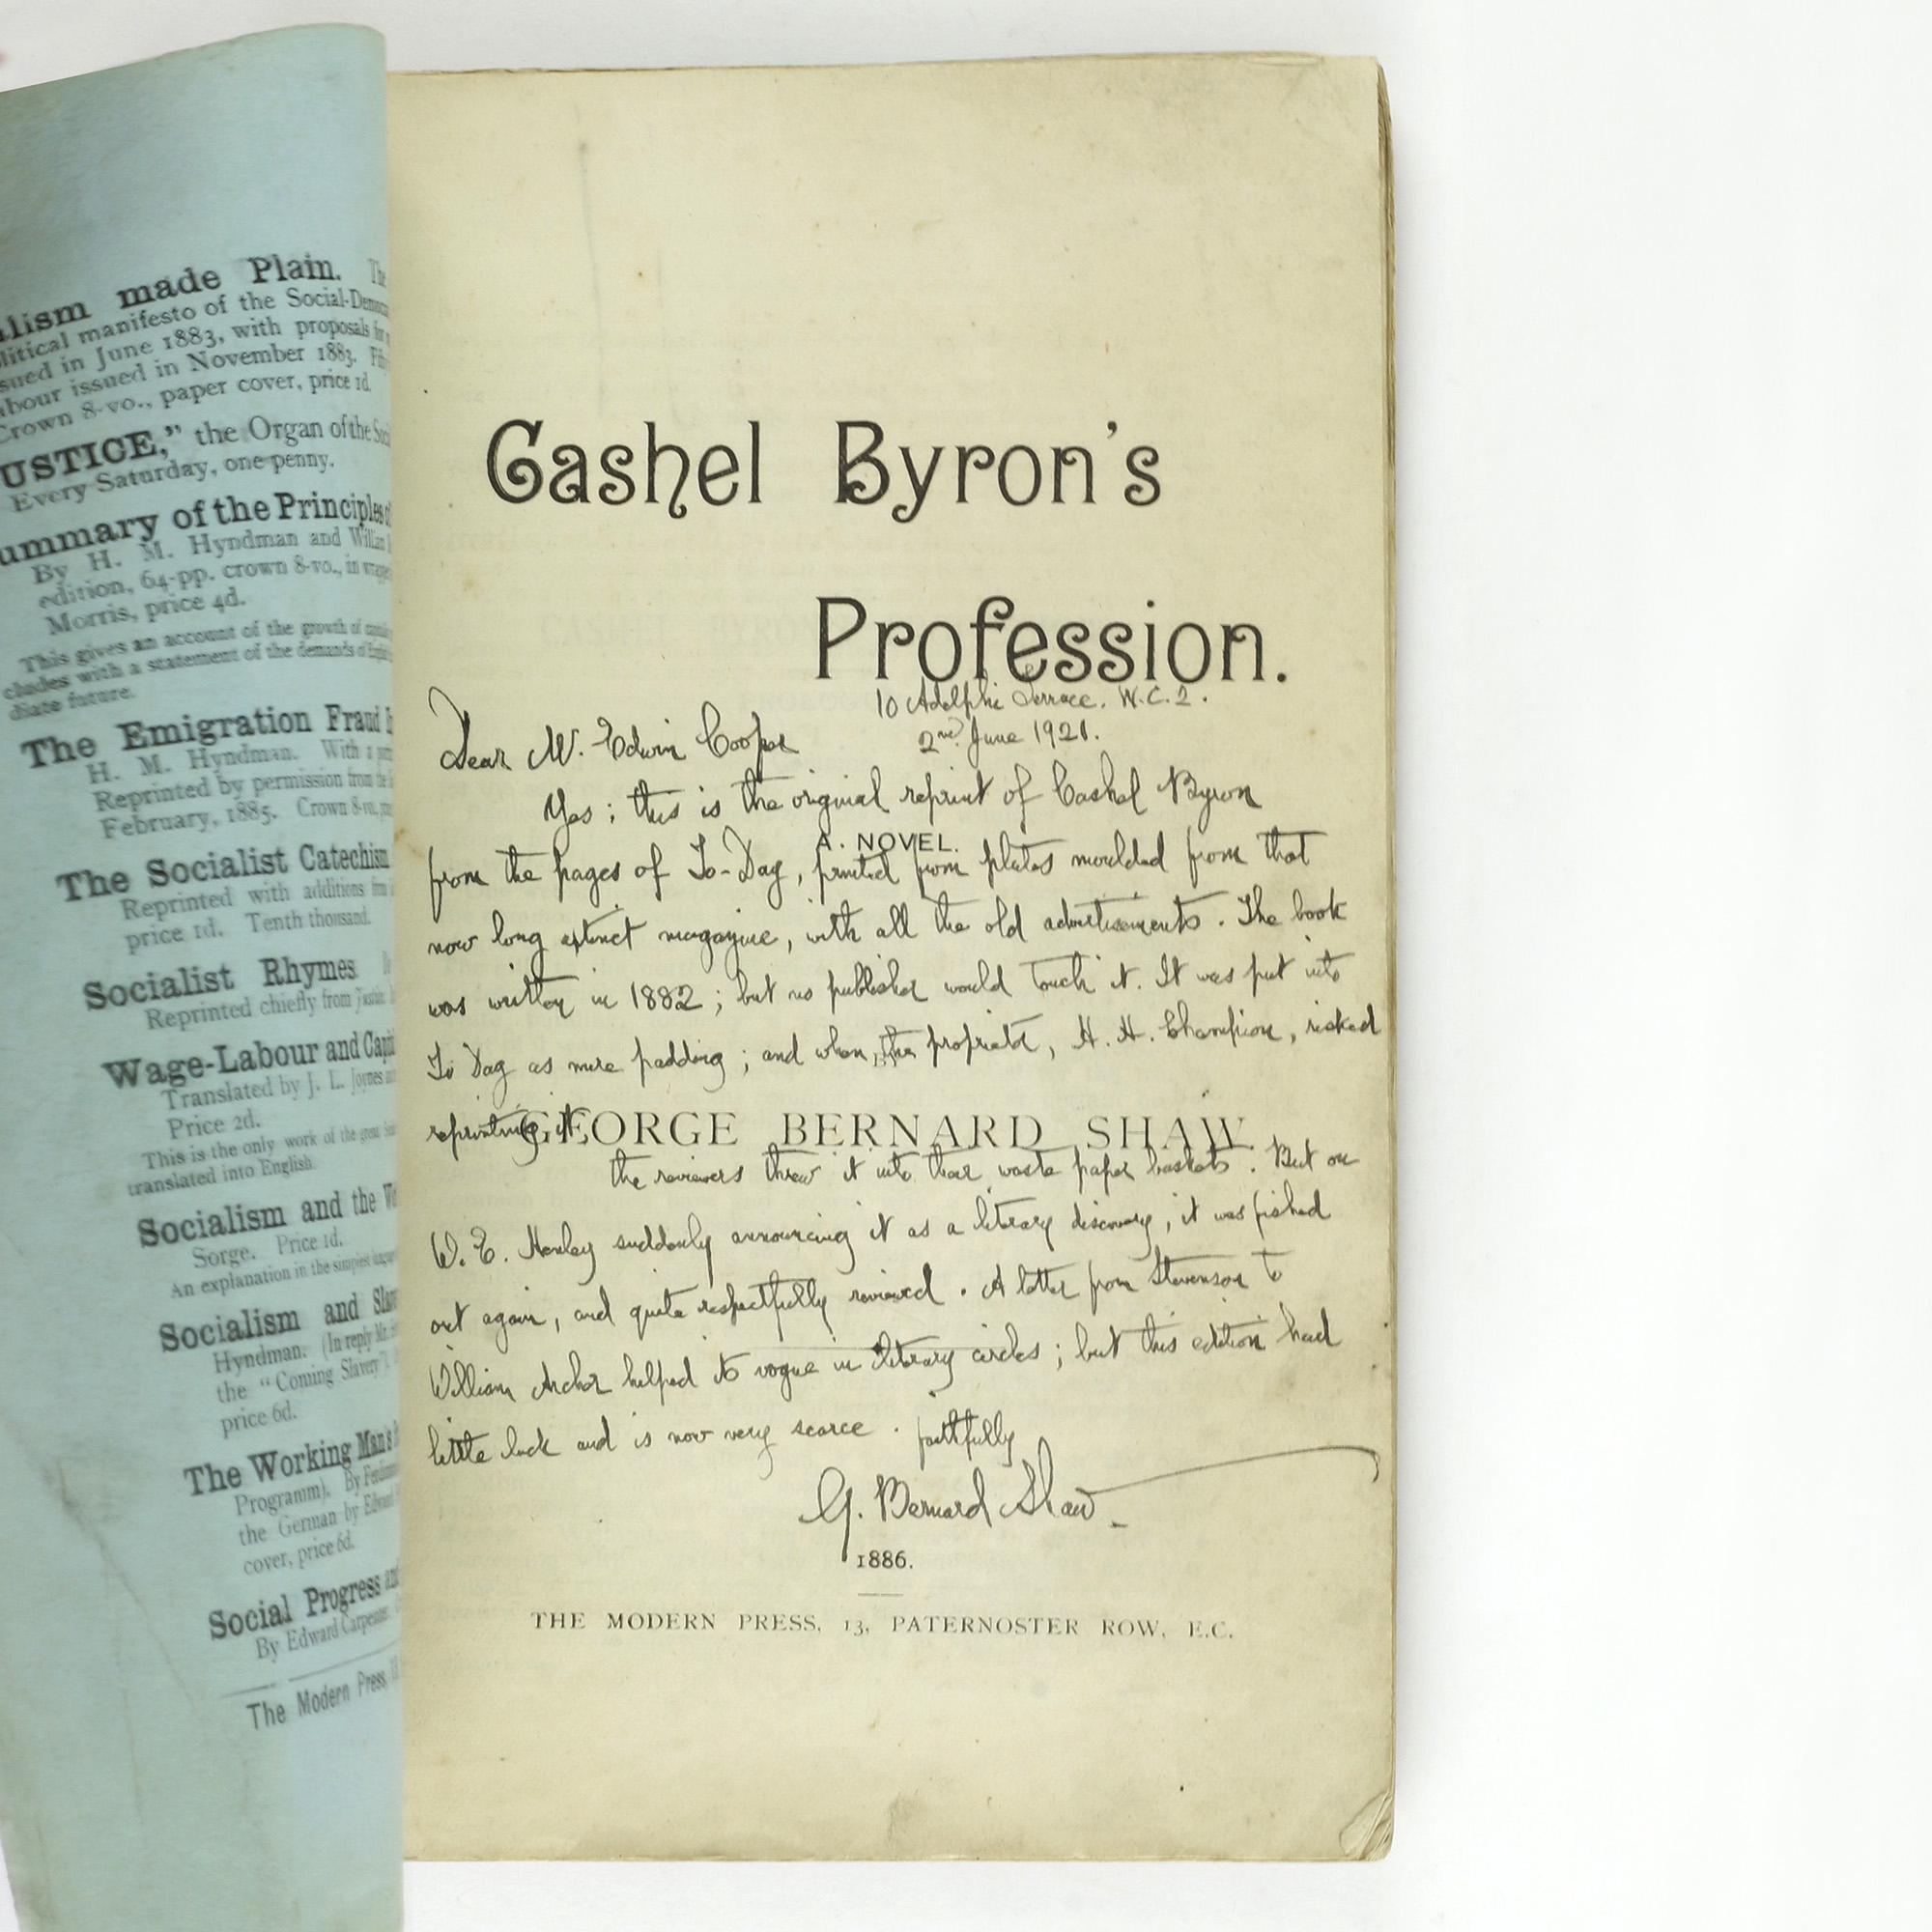 alism made Plain. The
litical manifesto of the Social-Democ
sued in June 1883, with proposals for
abour issued in November 1883.
Crown 8-vo., paper cover, price 1d.
USTICE," the Organ of the Soci
Every Saturday, one penny.
ummary of the Principles of
By H. M. Hyndman and William
edition, 64-pp. crown 8-vo., in wrapper
Morris, price 4d.
This gives an account of the growth of
cludes with a statement of the demands of Engli
diate future.
The Emigration Fraud
H. M. Hyndman. With a
Reprinted by permission from the
February, 1885. Crown 8-vo.,
The Socialist Catechism
Reprinted with additions from
price 1d. Tenth thousand.
Socialist Rhymes
Reprinted chiefly from Justice.
Wage-Labour and Capit
Translated by J. L. Joynes
Price 2d.
This is the only work of the great
translated into English.
Socialism and the W
Sorge. Price 1d.
An explanation in the simplest
Socialism and Slav
Hyndman. (In reply Mr.
the "Coming Slavery").
price 6d.
The Working Man's
Programm). By Ferdinand
the German by Edward
cover, price 6d.
Social Progress and
By Edward Carpenter.
The Modern Press,
Cashel Byron's
Profession.
10 Adelphi Terrace. W.C.2.
2nd June 1921.
Dear Mr. Edwin Cooper
Yes; this is the original reprint of Cashel Byron
A NOVEL.
from the pages of To-Day, printed from plates moulded from that
now long extinct magazine, with all the old advertisements. The book
was written in 1882; but no publisher would touch it. It was put into
To Day as mere padding; and when the proprietor, H. H. Champion, risked
BY
reprinting it
GEORGE BERNARD SHAW
the reviewers threw it into their waste paper baskets. But on
W. E. Henley suddenly announcing it as a literary discovery, it was fished
out again, and quite respectfully reviewed. A letter from Stevenson to
William Archer helped its vogue in literary circles; but this edition had
little luck and is now very scarce. faithfully
G. Bernard Shaw
1886.
THE MODERN PRESS, 13, PATERNOSTER ROW, E.C.